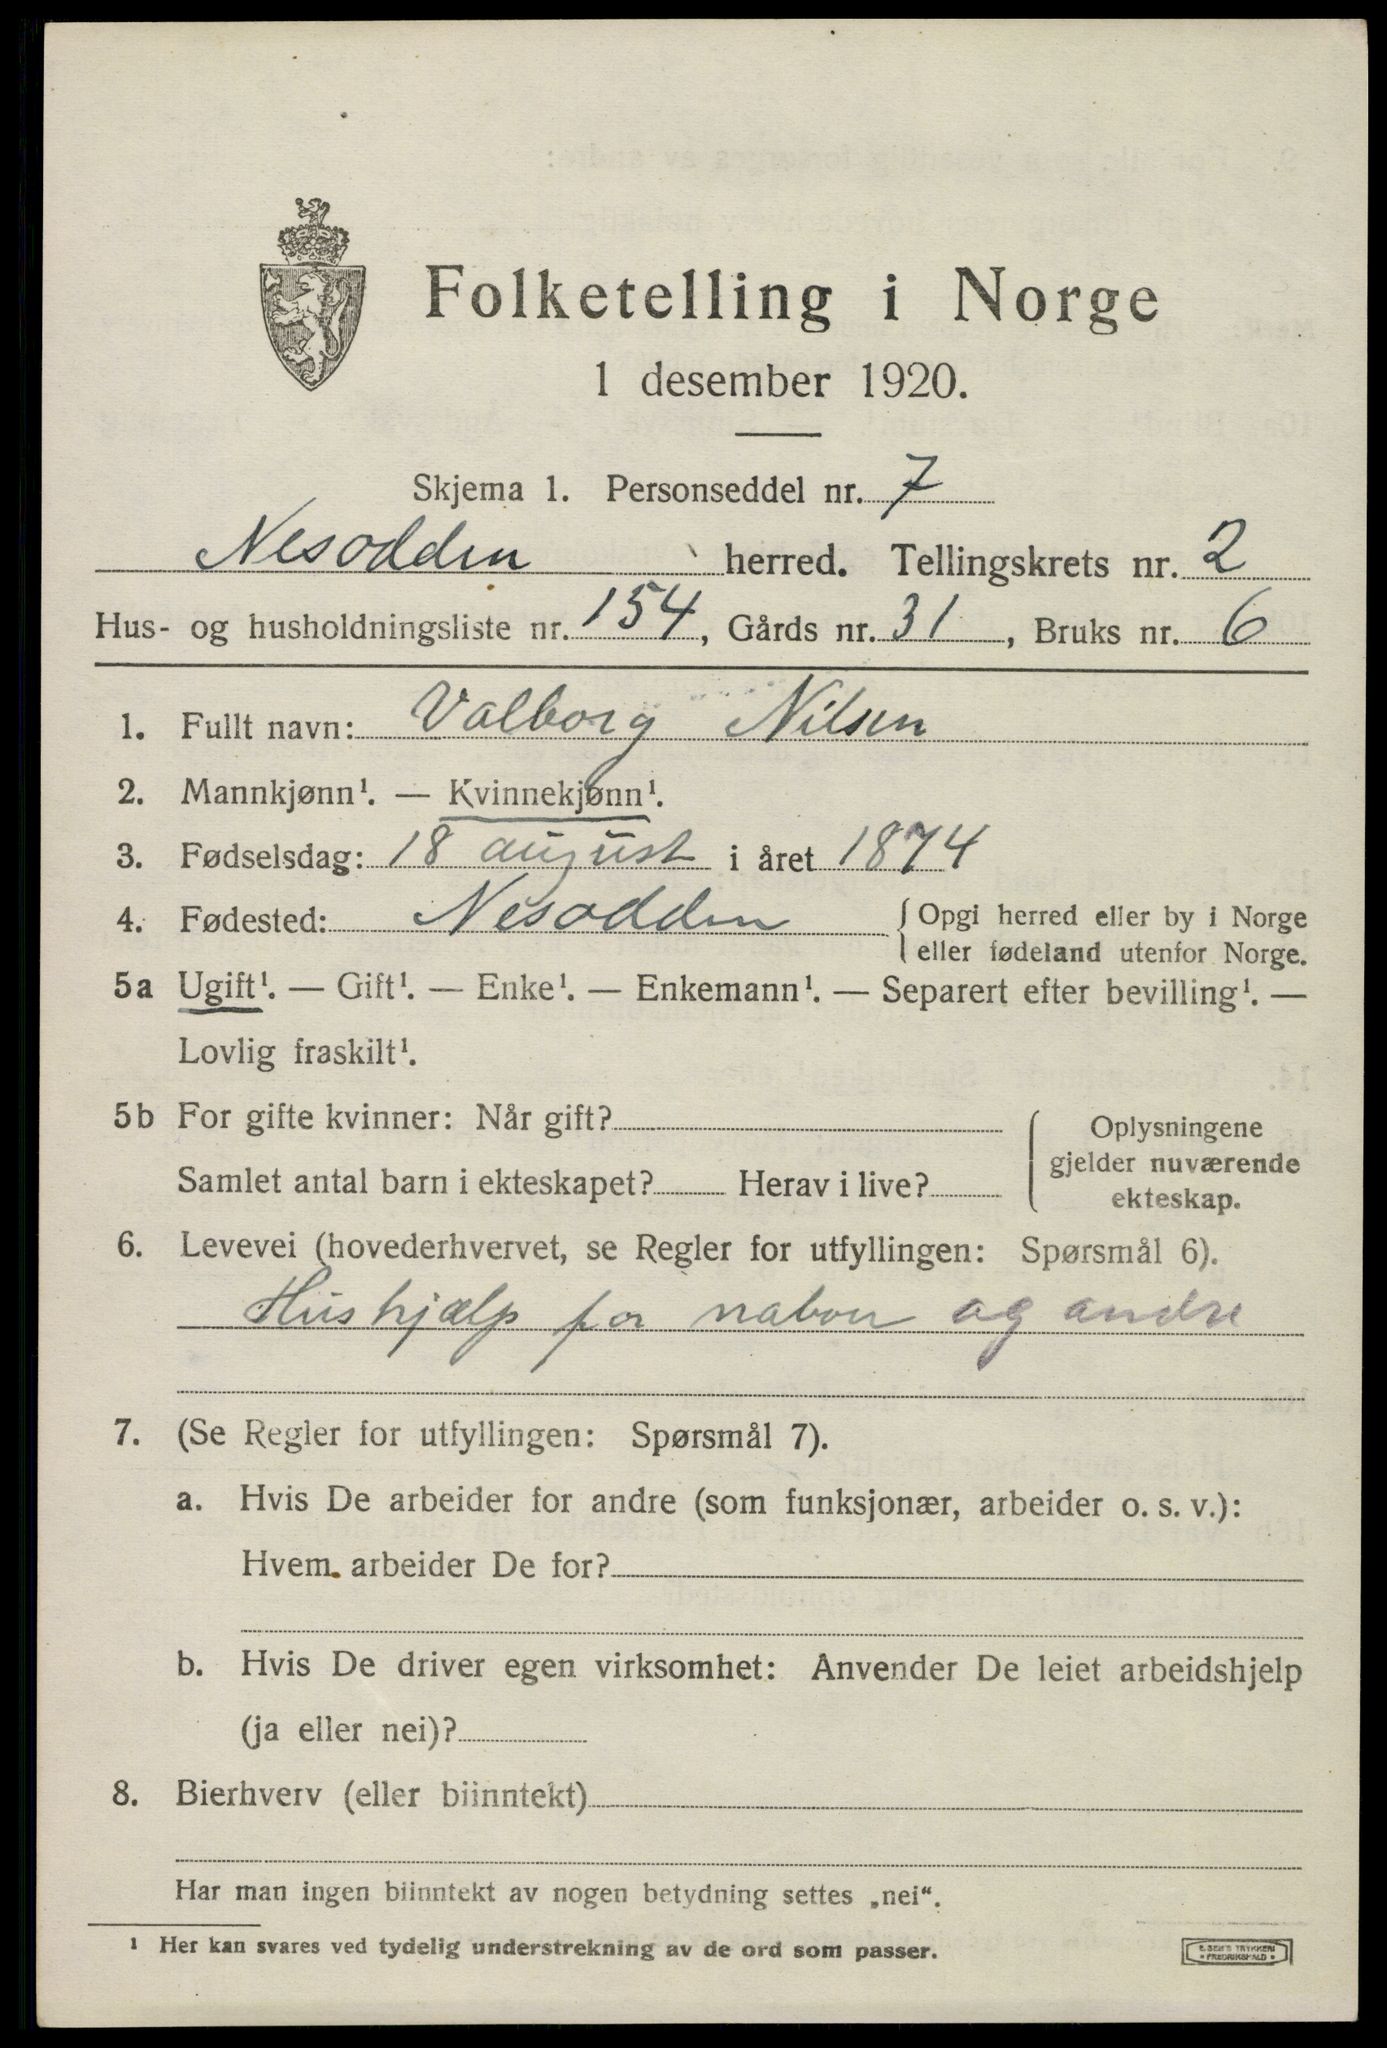 Folketelling i Norge
1 desember 1920.
Skjema 1. Personseddel nr. 7
Nesodden herred. Tellingskrets nr. 2
Hus- og husholdningsliste nr. 154, Gårds nr. 31, Bruks nr. 6
1. Fullt navn: Valborg Nilsen
2. Mannkjønn¹. — Kvinnekjønn¹.
3. Fødselsdag: 18 august i året 1874
4. Fødested: Nesodden { Opgi herred eller by i Norge
eller fødeland utenfor Norge.
5a Ugift¹. — Gift¹. — Enke¹. — Enkemann¹. — Separert efter bevilling¹. —
Lovlig fraskilt¹.
5b For gifte kvinner: Når gift?
Samlet antal barn i ekteskapet? Herav i live?
Oplysningene
gjelder nuværende
ekteskap.
6. Levevei (hovederhvervet, se Regler for utfyllingen: Spørsmål 6).
Hushjælp for naboer og andre
7. (Se Regler for utfyllingen: Spørsmål 7).
a. Hvis De arbeider for andre (som funksjonær, arbeider o. s. v.):
Hvem arbeider De for?
b. Hvis De driver egen virksomhet: Anvender De leiet arbeidshjelp
(ja eller nei)?
8. Bierhverv (eller biinntekt)
Har man ingen biinntekt av nogen betydning settes „nei“.
¹ Her kan svares ved tydelig understrekning av de ord som passer.
E. SEM'S TRYKKERI
FREDRIKSHALD